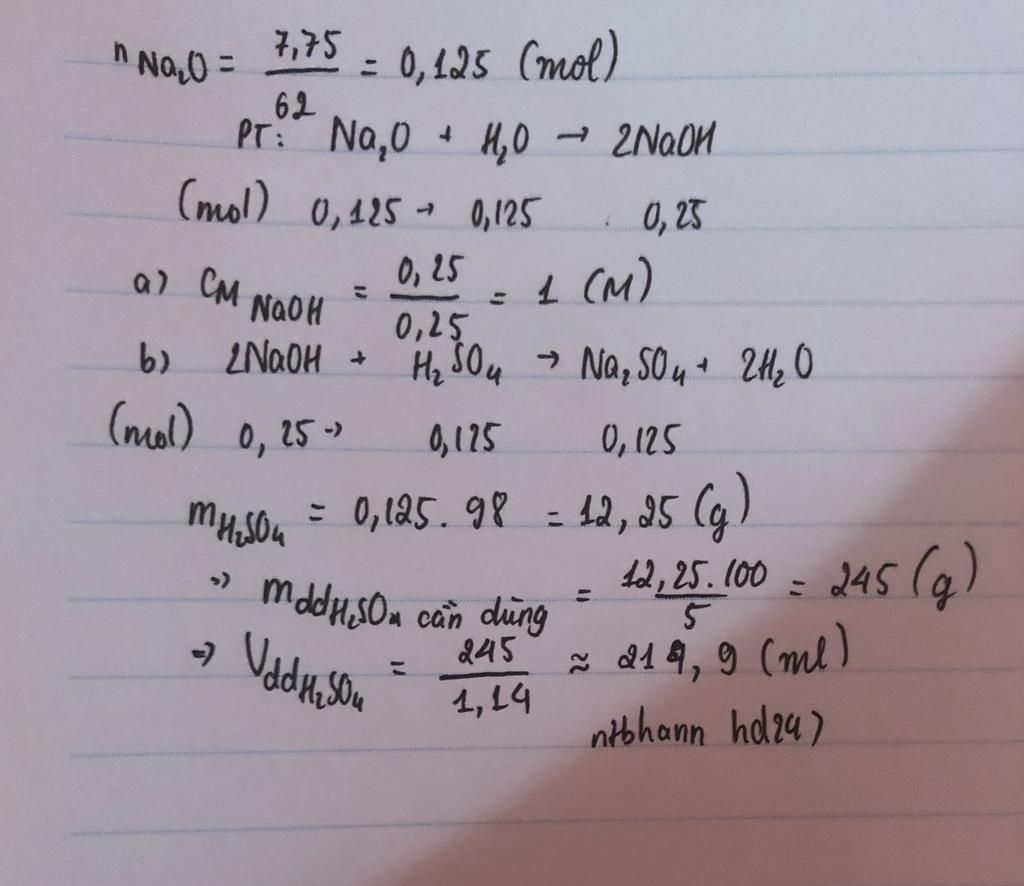 nNa₂O = 7,75/62 = 0,125 (mol)
PT: Na₂O + H₂O → 2NaOH
(mol) 0,125 → 0,125 0,25
a) CM NaOH = 0,25/0,25 = 1 (M)
b) 2NaOH + H₂SO₄ → Na₂SO₄ + 2H₂O
(mol) 0,25 → 0,125 0,125
mH₂SO₄ = 0,125. 98 = 12,25 (g)
=> mddH₂SO₄ cần dùng = 12,25.100/5 = 245 (g)
=> VddH₂SO₄ = 245/1,14 ≈ 214,9 (ml)
ntbhann hd24)